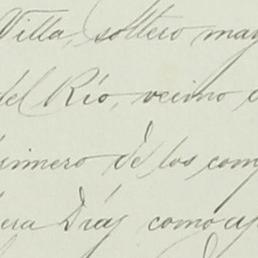 Villa, soltero may
del Río, vecino
rimero de los com
era Díaz como ap